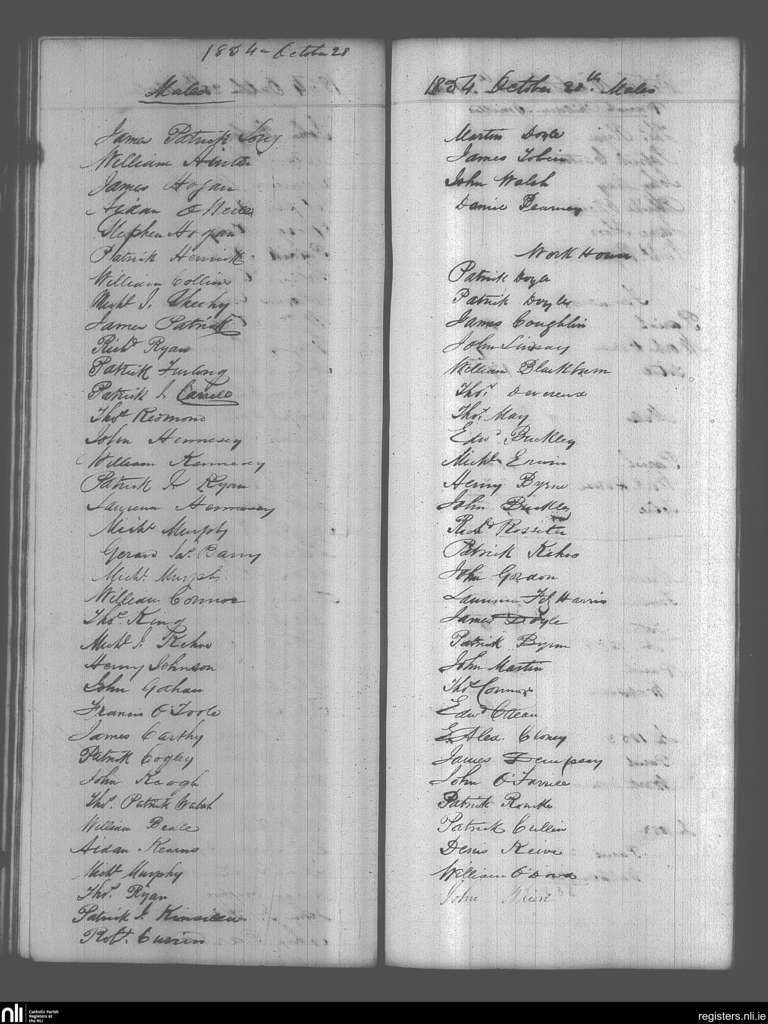 1854 October 28
Males
James Patrick
William
James Hogan
Aidan O Neill
Stephen Hogan
Patrick Henrick
William Collins
Michl J. Sheehy
James Patrick
Richd Ryan
Patrick Furlong
Patrick J. Carroll
Thos Redmond
John Hennesey
William Kennesey
Patrick Ryan
Laurence Hennesey
Michl Murphy
Gerard Jas. Barry
Michl Murphy
William Connor
Thos King
Michl J. Kehoe
Henry Johnson
John Gahan
Francis O'Toole
James Carthy
Patrick Cogley
John Keogh
Thos. Patrick Walsh
William Beale
Aidan Kearns
Michl Murphy
Thos. Ryan
Patrick J. Kinsilew
Robt. Currin
1854. October 28th. Males
Martin Doyle
James Tobin
John Walsh
Daniel Pearney
Work House
Patrick Doyle
Patrick Doyle
James Coughlin
John Lindsay
William Blackburn
Thos. Devereux
Thos. May
Edwd Buckley
Michl Erwin
Henry Byrne
John Buckley
Richd Rossiter
Patrick Kehoe
John Gordon
Laurence Fitz Harris
James Doyle
Patrick Byrne
John Martin
Thos Connor
Edwd
Alex Cloney
James Dempsey
John O'Farrell
Patrick Rourke
Patrick Cullen
Denis
William O'Dowd
John
nli
Catholic Parish
Registers at
the NLI
registers.nli.ie